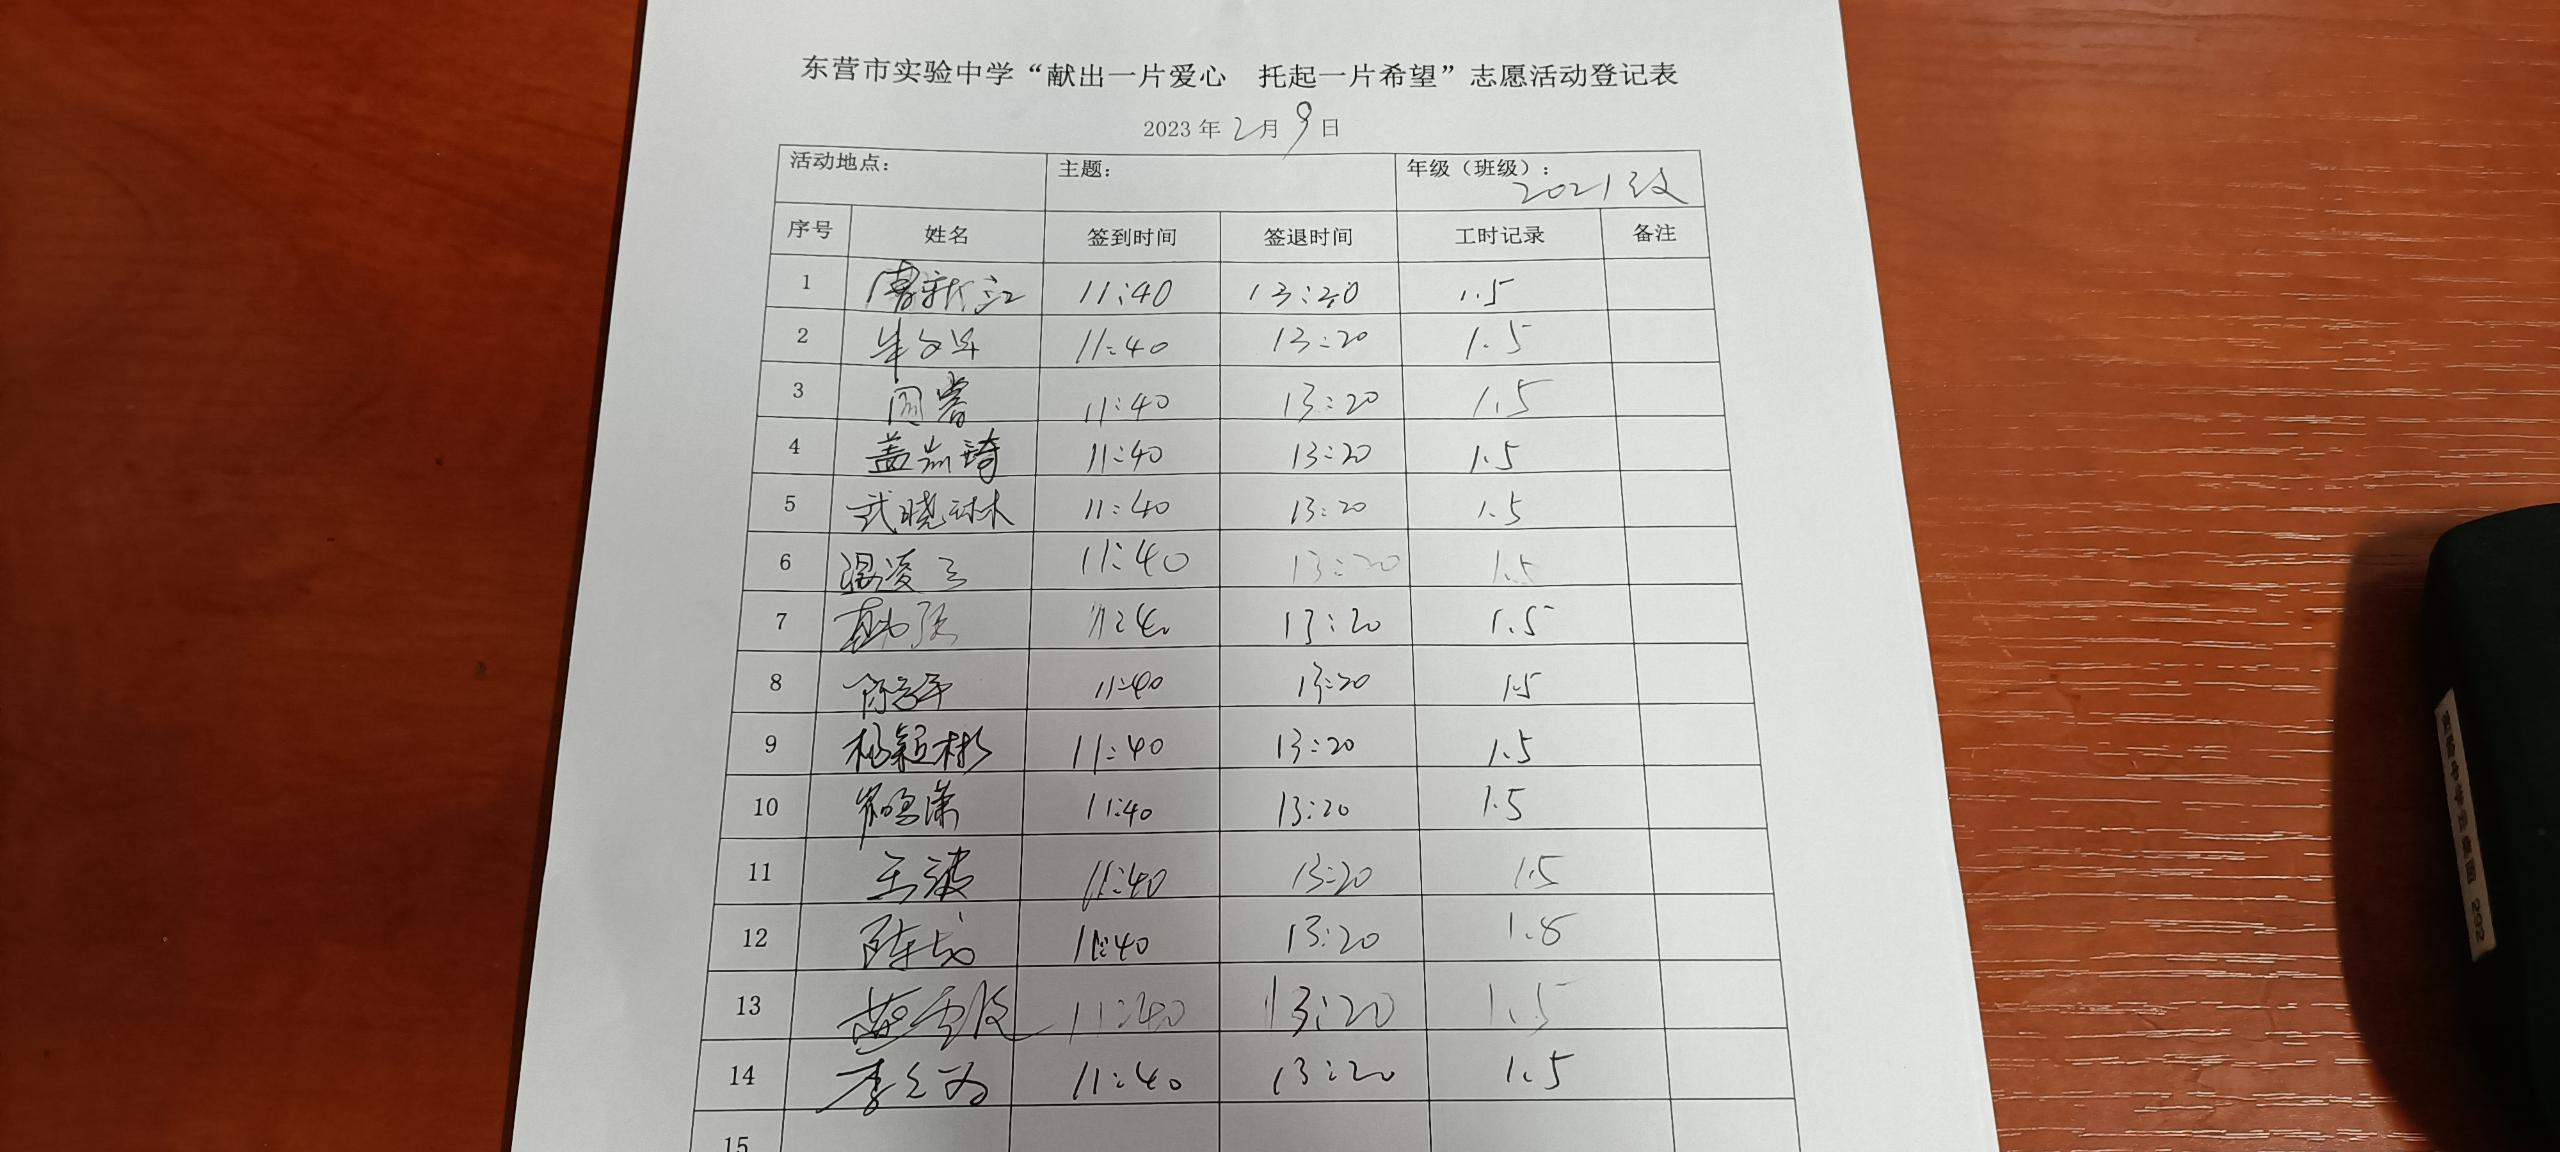 东营市实验中学“献出一片爱心 托起一片希望”志愿活动登记表
2023年2月9日
活动地点： 主题： 年级（班级）：2021级
序号 姓名 签到时间 签退时间 工时记录 备注
1 曹新江 11:40 13:20 1.5
2 11:40 13:20 1.5
3 11:40 13:20 1.5
4 盖岚琦 11:40 13:20 1.5
5 武晓琳 11:40 13:20 1.5
6 梁凌云 11:40 13:20 1.5
7 13:20 1.5
8 11:40 13:20 1.5
9 杨颖彬 11:40 13:20 1.5
10 11:40 13:20 1.5
11 王波 11:40 13:20 1.5
12 11:40 13:20 1.8
13 11:40 13:20 1.5
14 11:40 13:20 1.5
15